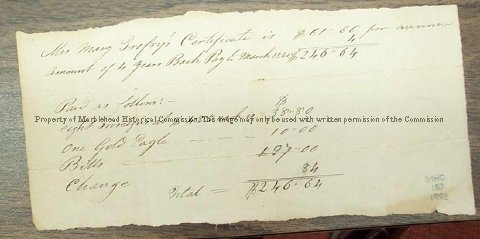 Mrs Mary Trefry's Certificate is $61-00 per annum
4
amount of 4 years Back Pay to March $246-64
Paid as follows:-
$
eight 38-80
Property of Marblehead Historical Commission. This image may only be used with written permission of the Commission
One Gold Eagle - 10-00
Bills - 197-00
Change 84
Total = $246-64
MHC
187
1993